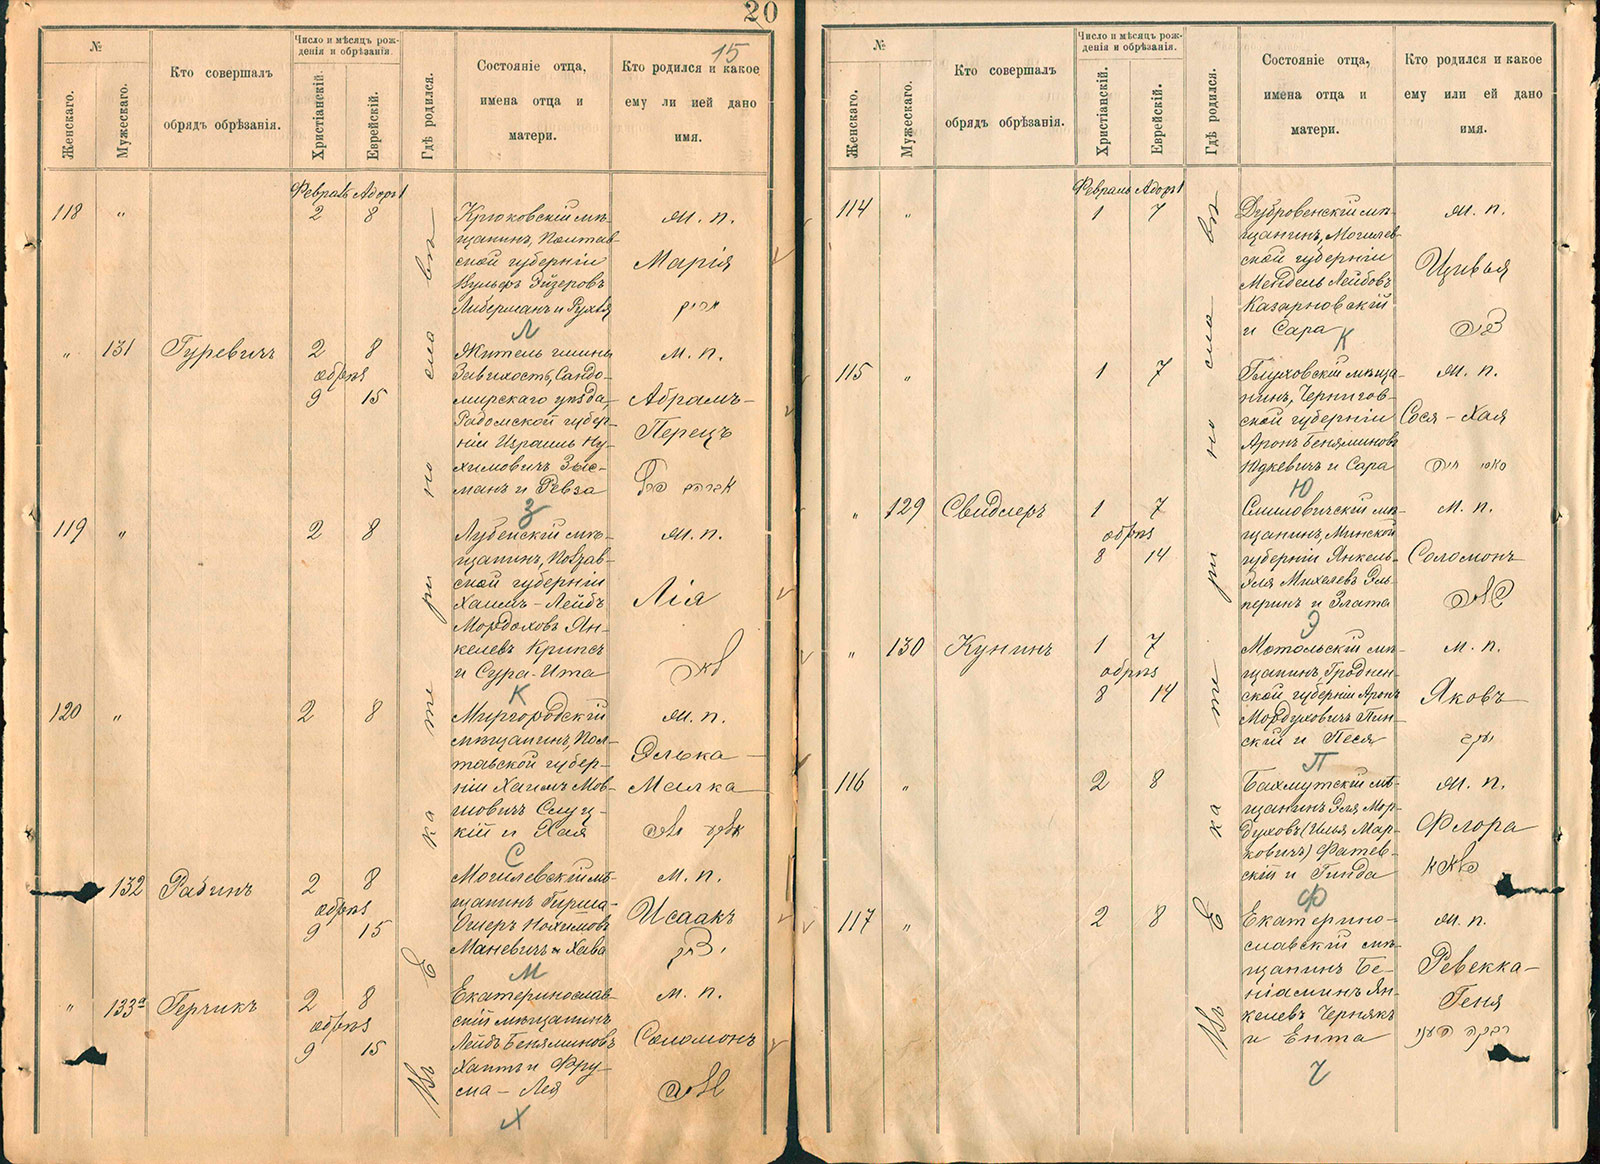 20
15
№
Женскаго.
Мужескаго.
Кто совершалъ
обрядъ обрѣзанія.
Число и мѣсяцъ рож-
денія и обрѣзанія.
Христіанскій.
Еврейскій.
Гдѣ родился.
Состояніе отца,
имена отца и
матери.
Кто родился и какое
ему ли ией дано
имя.
Февраль Адоръ 1
118 „ 2 8
Крюковскій мѣ-
щанинъ, Полтав-
ской губерніи
Вульфъ Эйзеровъ
Либерманъ и Рухля
Л
ж. п.
Марія
„ 131 Гуревичъ 2 8
обрѣз
9 15
Житель гмины
Завихостъ, Сандо-
мирскаго уѣзда,
Радомской губер-
ніи Израиль Ну-
химовичъ Зыс-
манъ и Ревза
З
м. п.
Абрамъ-
Перецъ
119 „ 2 8
Лубенскій мѣ-
щанинъ, Полтав-
ской губерніи
Хаимъ-Лейбъ
Мордоховъ Ян-
келевъ Крипсъ
и Сура-Ита
К
ж. п.
Лія
לאה
120 „ 2 8
Миргородскій
мѣщанинъ, Пол-
тавской губер-
ніи Хаимъ Мов-
шовичъ Слуц-
кій и Хая
С
ж. п.
Элька-
Малка
132 Рабинъ 2 8
обрѣз
9 15
Могилевскій мѣ-
щанинъ Гирша-
Ошеръ Нохимовъ
Маневичъ и Хава
М
м. п.
Исаакъ
„ 133а Герчикъ 2 8
обрѣз
9 15
Екатеринослав-
скій мѣщанинъ
Лейбъ Беняминовъ
Хаитъ и Фру-
ма-Лея
Х
м. п.
Соломонъ
Въ Екатеринославъ
№
Женскаго.
Мужескаго.
Кто совершалъ
обрядъ обрѣзанія.
Число и мѣсяцъ рож-
денія и обрѣзанія.
Христіанскій.
Еврейскій.
Гдѣ родился.
Состояніе отца,
имена отца и
матери.
Кто родился и какое
ему или ей дано
имя.
Февраль Адоръ 1
114 „ 1 7
Дубровенскій мѣ-
щанинъ, Могилев-
ской губерніи
Мендель Лейбовъ
Казарновскій
и Сара
К
ж. п.
Цивья
115 „ 1 7
Глуховскій мѣща-
нинъ, Чернигов-
ской губерніи
Аронъ Беняминовъ
Юдкевичъ и Сара
Ю
ж. п.
Сося-Хая
„ 129 Свидлеръ 1 7
обрѣз
8 14
Смиловичскій мѣ-
щанинъ, Минской
губерніи Янкель-
Эля Михелевъ Эль-
перинъ и Злата
Э
м. п.
Соломонъ
„ 130 Кунинъ 1 7
обрѣз
8 14
Мотольскій мѣ-
щанинъ Гроднен-
ской губерніи Аронъ
Мордуховичъ Пин-
скій и Песя
П
м. п.
Яковъ
יעקב
116 „ 2 8
Бахмутскій мѣ-
щанинъ Эля Мор-
духовъ (Илья Мар-
ковичъ) Фатев-
скій и Гинда
Ф
ж. п.
Флора
117 „ 2 8
Екатерино-
славскій мѣ-
щанинъ Бе-
ніаминъ Ян-
келевъ Чернякъ
и Ента
Ч
ж. п.
Ревекка-
Геня
רבקה העני
Въ Екатеринославъ